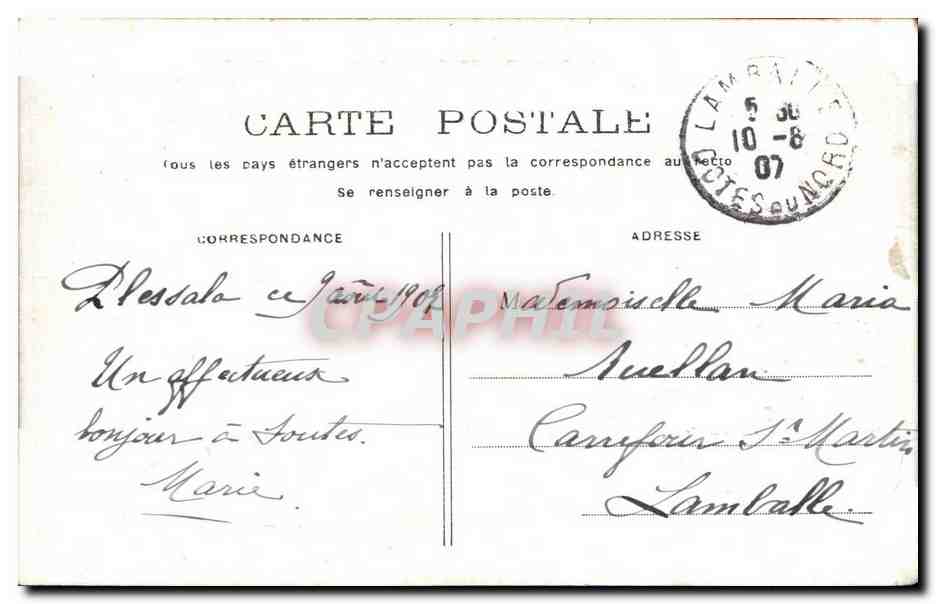 CARTE POSTALE
Tous les pays étrangers n'acceptent pas la correspondance au recto
Se renseigner à la poste.
LAMBALLE
5 30
10 -8
07
COTES DU NORD
CORRESPONDANCE
ADRESSE
Plessala ce 9 août 1907
Un affectueux
bonjour à toutes.
Marie
Mademoiselle Maria
Ruellan
Carrefour St Martin
Lamballe.
CPAPHIL